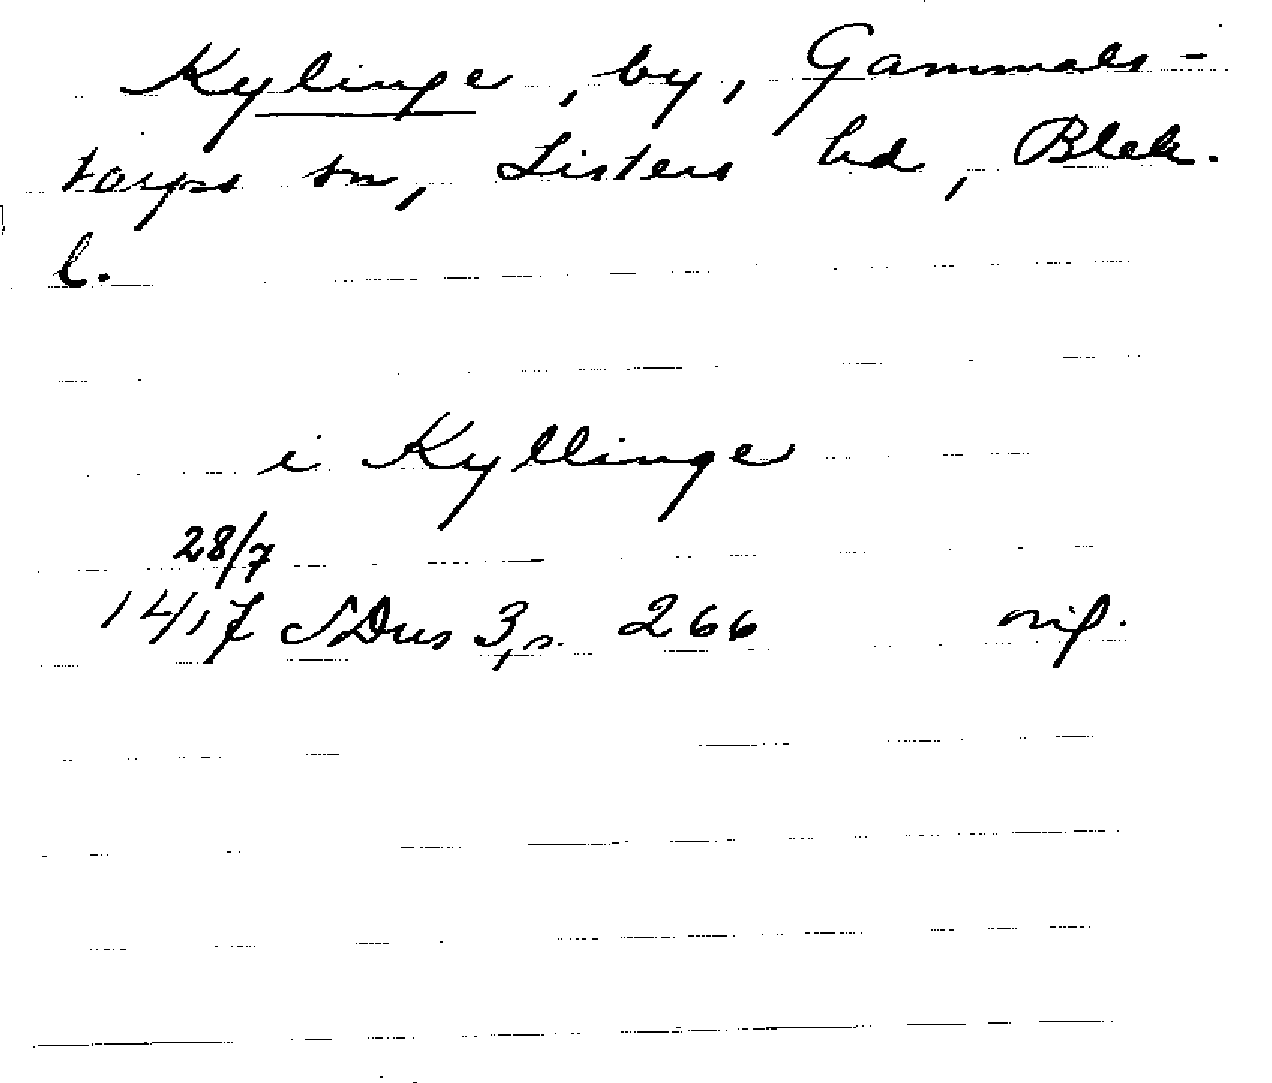 Kylinge, by, Gammals-
torps sn, Listers hd, Blek.
l.
i Kyllinge
28/7
1417 SDns 3, s. 266 orig.